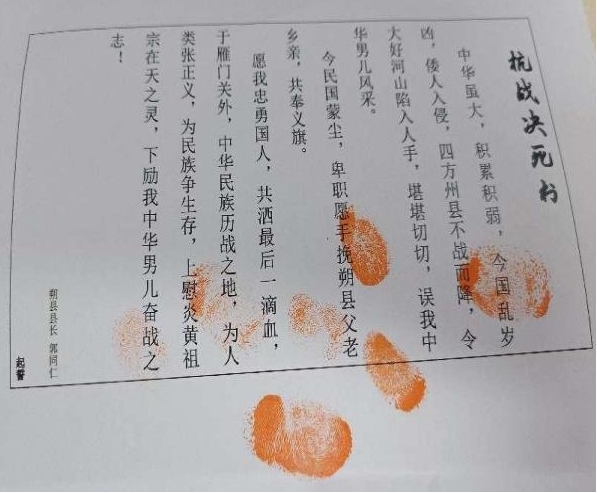 抗战决死书
中华虽大，积累积弱，今国乱岁
凶，倭人入侵，四方州县不战而降，令
大好河山陷入人手，堪堪切切，误我中
华男儿风采。
今民国蒙尘，卑职愿手挽朔县父老
乡亲，共奉义旗。
愿我忠勇国人，共洒最后一滴血，
于雁门关外，中华民族历战之地，为人
类张正义，为民族争生存，上慰炎黄祖
宗在天之灵，下励我中华男儿奋战之
志！
朔县县长 郭同仁
起誓